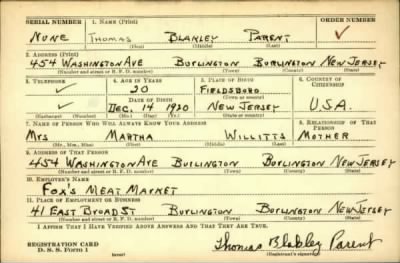 SERIAL NUMBER 1. NAME (Print) ORDER NUMBER
NONE THOMAS BLAKLEY PARENT ✓
(First) (Middle) (Last)
2. ADDRESS (Print)
454 WASHINGTON AVE BURLINGTON BURLINGTON NEW JERSEY
(Number and street or R. F. D. number) (Town) (County) (State)
3. TELEPHONE 4. AGE IN YEARS 5. PLACE OF BIRTH 6. COUNTRY OF CITIZENSHIP
✓ 20 FIELDSBORO
(Town or county)
DATE OF BIRTH
✓ DEC. 14 1920 NEW JERSEY U.S.A.
(Mo.) (Day) (Yr.) (State or country)
7. NAME OF PERSON WHO WILL ALWAYS KNOW YOUR ADDRESS 8. RELATIONSHIP OF THAT PERSON
MRS MARTHA WILLITTS MOTHER
(Mr., Mrs., Miss) (First) (Middle) (Last)
9. ADDRESS OF THAT PERSON
454 WASHINGTON AVE BURLINGTON BURLINGTON NEW JERSEY
(Number and street or R. F. D. number) (Town) (County) (State)
10. EMPLOYER'S NAME
FOX'S MEAT MARKET
11. PLACE OF EMPLOYMENT OR BUSINESS
41 EAST BROAD ST BURLINGTON BURLINGTON NEW JERSEY
(Number and street or R. F. D. number) (Town) (County) (State)
I AFFIRM THAT I HAVE VERIFIED ABOVE ANSWERS AND THAT THEY ARE TRUE.
REGISTRATION CARD
D. S. S. Form 1 (over) Thomas Blakley Parent
(Registrant's signature)